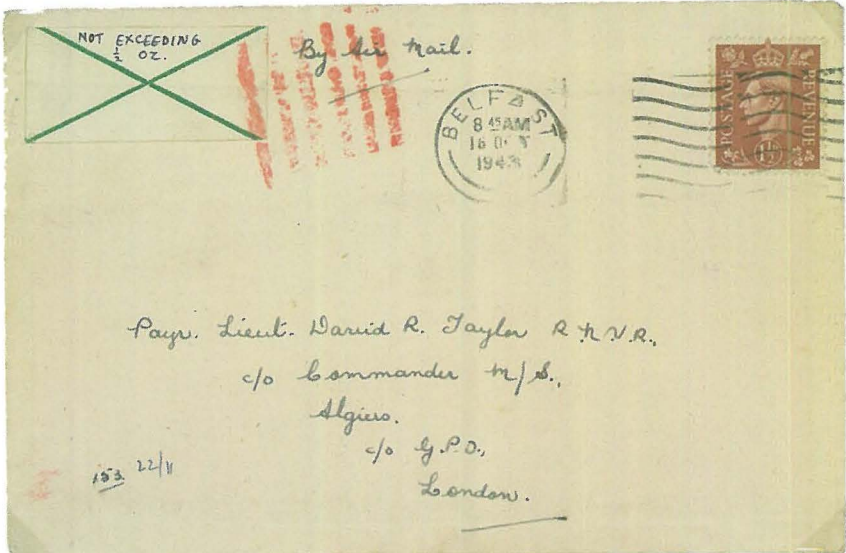 NOT EXCEEDING
½ OZ.
By Air Mail.
BELFAST
8 45 AM
1943
POSTAGE
REVENUE
1½
Payr. Lieut. David R. Taylor R.N.V.R.,
c/o Commander M/S.,
Algiers.
c/o G.P.O.,
London.
153 22/11